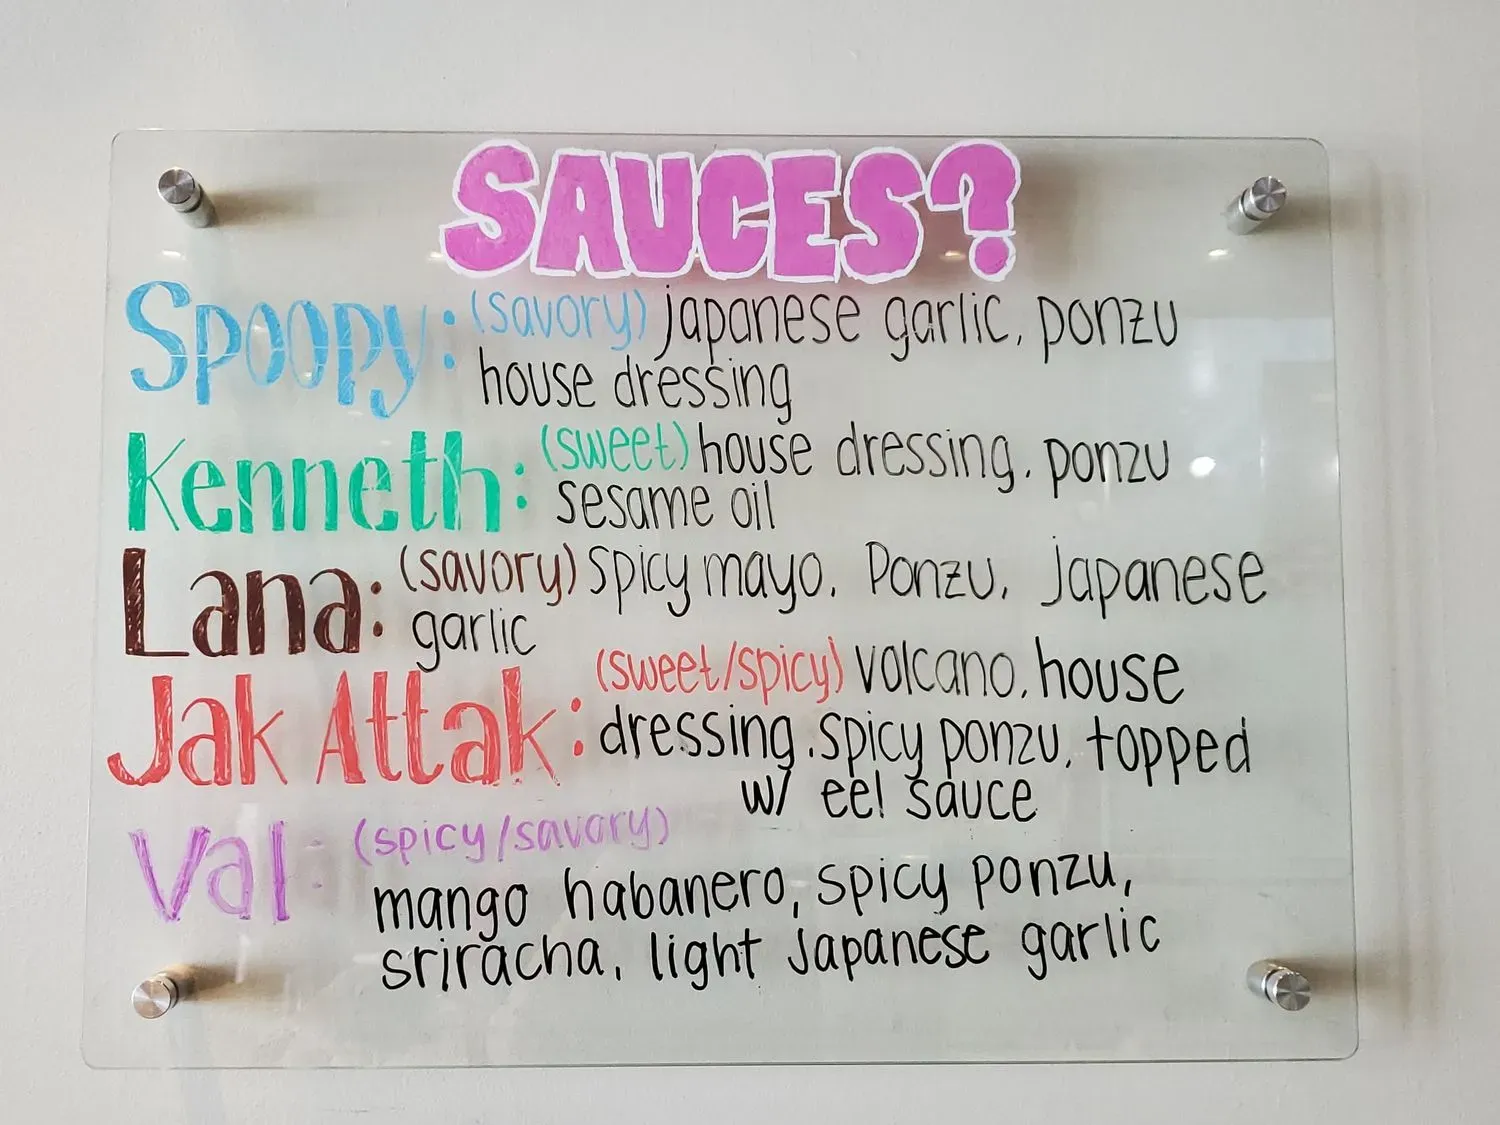 SAUCES?
Spoopy: (savory) japanese garlic, ponzu
house dressing
Kenneth: (sweet) house dressing, ponzu
sesame oil
Lana: (savory) spicy mayo, Ponzu, Japanese
garlic
Jak Attak: (sweet/spicy) volcano, house
dressing, spicy ponzu, topped
w/ eel sauce
Val: (spicy/savory)
mango habanero, spicy ponzu,
sriracha, light Japanese garlic